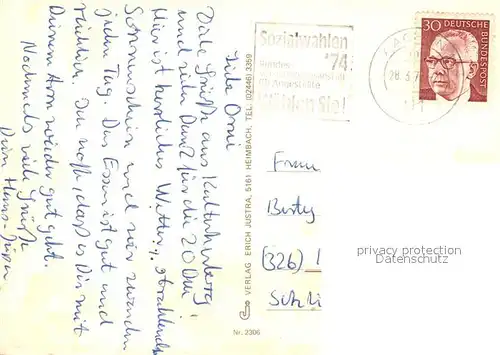 Liebe Omi
Viele Grüße aus Kalterherberg
und vielen Dank für die 20 DM.
Hier ist herrliches Wetter, strahlender
Sonnenschein und wir wandern
jeden Tag. Das Essen ist gut und
reichlich. Ich hoffe, daß es Dir mit
Deinem Arm wieder gut geht.
Nochmals viele Grüße
Dein Hans-Jürgen
VERLAG ERICH JUSTRA, 5161 HEIMBACH, TEL. (02446) 3359
Nr. 2306
Sozialwahlen
'74
Bundes
für Angestellte
Wählen Sie!
28.3.7
30 DEUTSCHE
BUNDESPOST
Frau
(326) 1
privacy protection
Datenschutz